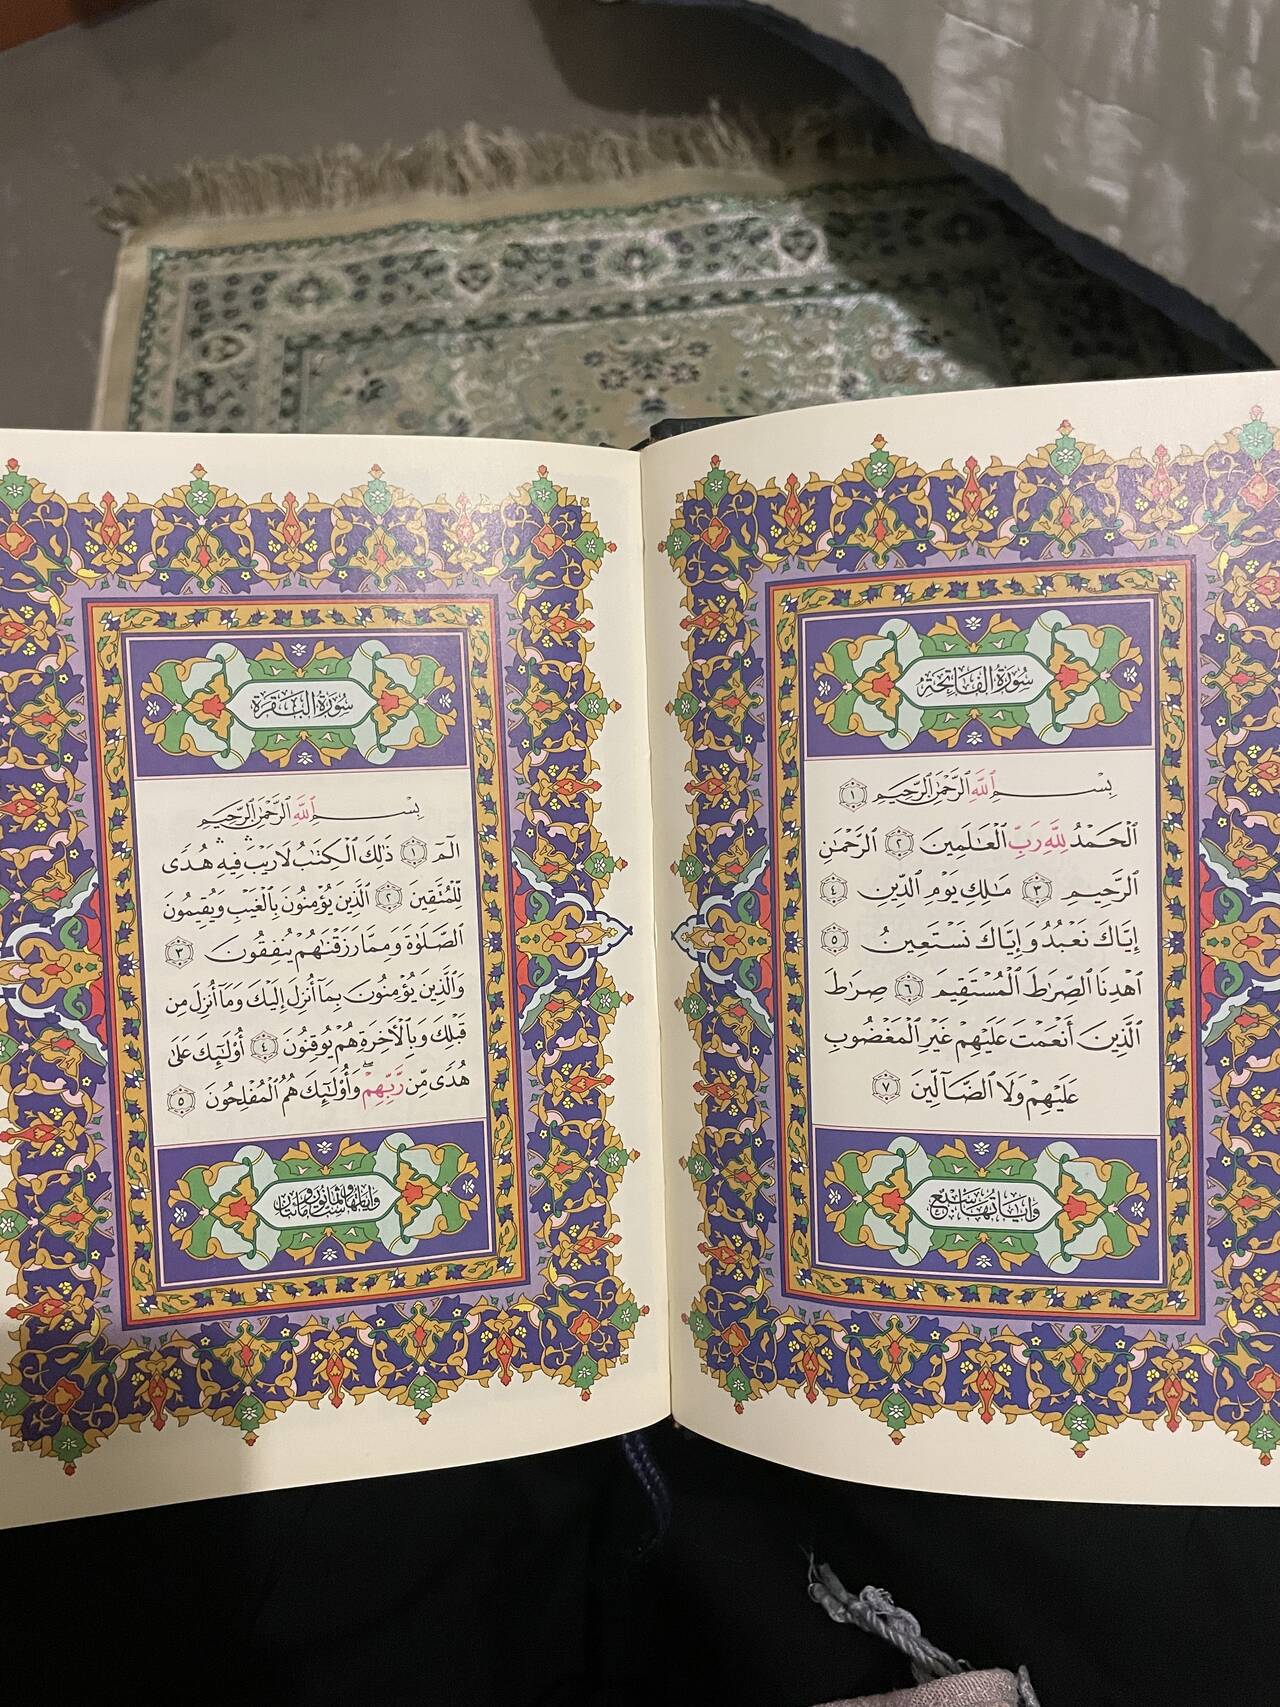 سُورَةُ الْفَاتِحَةِ
بِسْمِ ٱللَّهِ ٱلرَّحْمَٰنِ ٱلرَّحِيمِ ١
ٱلْحَمْدُ لِلَّهِ رَبِّ ٱلْعَٰلَمِينَ ٢ ٱلرَّحْمَٰنِ
ٱلرَّحِيمِ ٣ مَٰلِكِ يَوْمِ ٱلدِّينِ ٤
إِيَّاكَ نَعْبُدُ وَإِيَّاكَ نَسْتَعِينُ ٥
ٱهْدِنَا ٱلصِّرَٰطَ ٱلْمُسْتَقِيمَ ٦ صِرَٰطَ
ٱلَّذِينَ أَنْعَمْتَ عَلَيْهِمْ غَيْرِ ٱلْمَغْضُوبِ
عَلَيْهِمْ وَلَا ٱلضَّآلِّينَ ٧
وَآيَاتُهَا سَبْعٌ
سُورَةُ الْبَقَرَةِ
بِسْمِ ٱللَّهِ ٱلرَّحْمَٰنِ ٱلرَّحِيمِ
الٓمٓ ١ ذَٰلِكَ ٱلْكِتَٰبُ لَا رَيْبَۛ فِيهِۛ هُدًى
لِّلْمُتَّقِينَ ٢ ٱلَّذِينَ يُؤْمِنُونَ بِٱلْغَيْبِ وَيُقِيمُونَ
ٱلصَّلَوٰةَ وَمِمَّا رَزَقْنَٰهُمْ يُنفِقُونَ ٣
وَٱلَّذِينَ يُؤْمِنُونَ بِمَآ أُنزِلَ إِلَيْكَ وَمَآ أُنزِلَ مِن
قَبْلِكَ وَبِٱلْءَاخِرَةِ هُمْ يُوقِنُونَ ٤ أُو۟لَٰٓئِكَ عَلَىٰ
هُدًى مِّن رَّبِّهِمْۖ وَأُو۟لَٰٓئِكَ هُمُ ٱلْمُفْلِحُونَ ٥